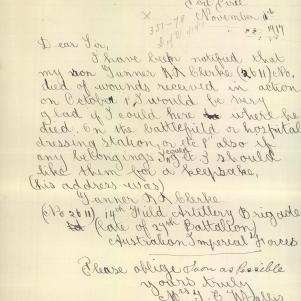 Port Pirie
November 1st
23. 1917
Dear Sir,
I have been notified that
my son Gunner Clerke (2611) No.
died of wounds received in action
on October I would be very
glad if I could here where he
died. On the battlefield or hospital
dressing station, or etc & also if
any belongings could etc I should
like them for a keepsake,
(His address was)
Gunner Clerke
(No 2611) 14th Field Artillery Brigade
(late of 27th Battalion
Australian Imperial Forces
Please oblige soon as possible
yours truly
Mrs